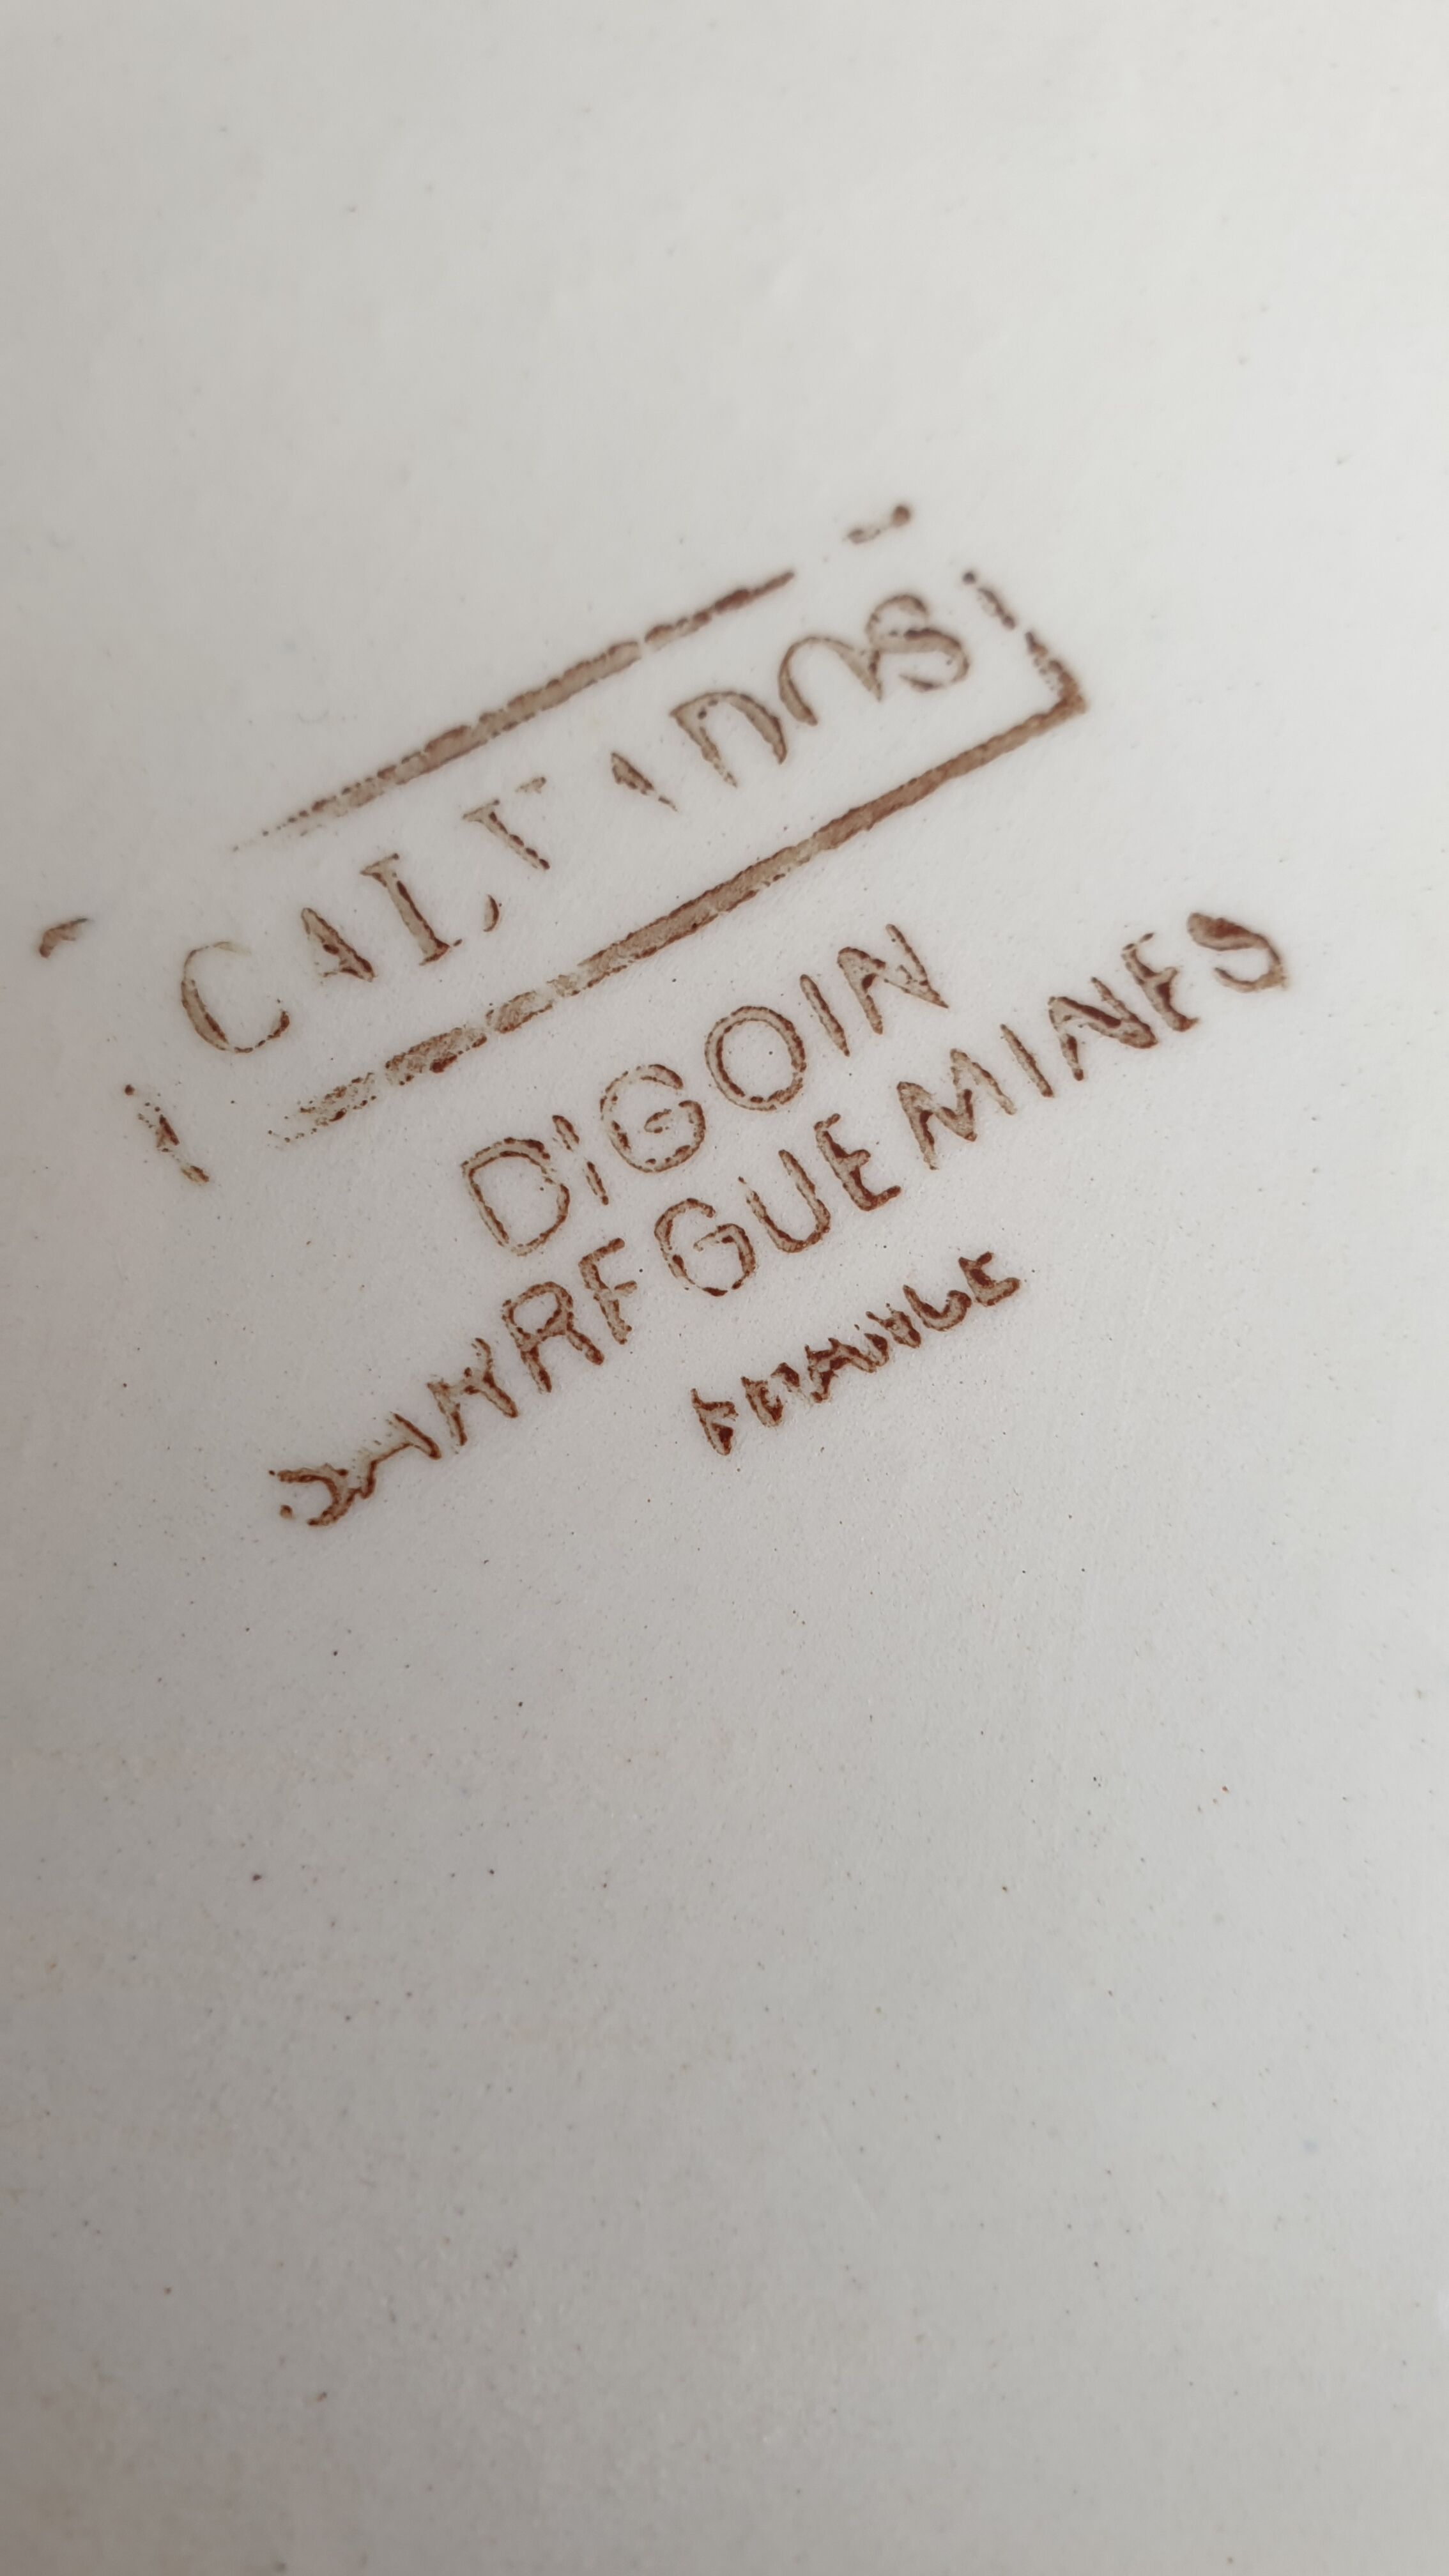 CALVADOS
DIGOIN
SARREGUEMINES
FRANCE